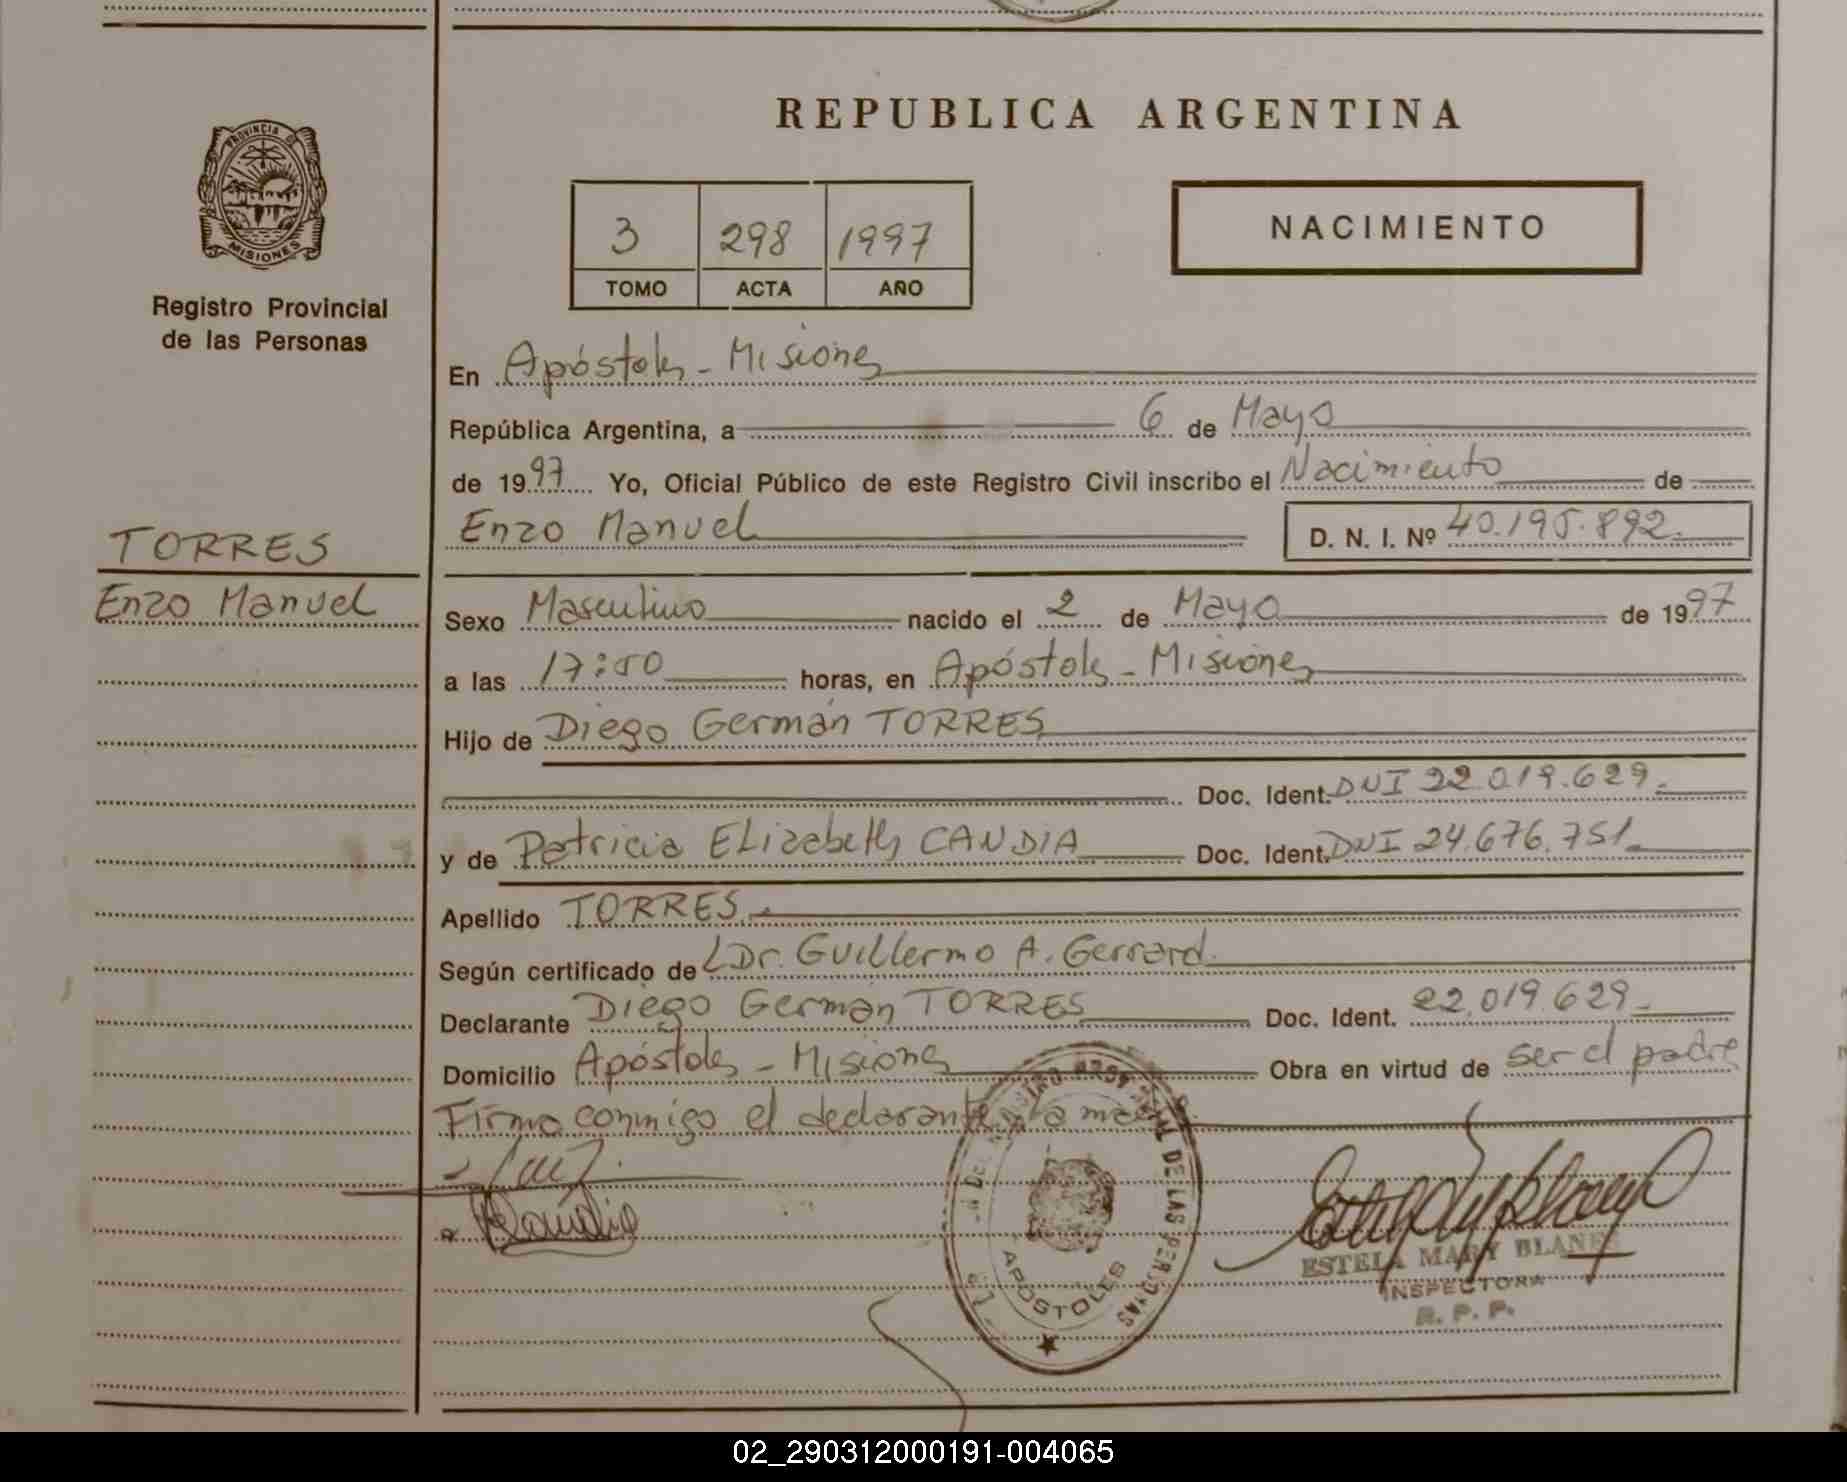 REPUBLICA ARGENTINA
PROVINCIA DE
MISIONES
Registro Provincial
de las Personas
3 298 1997
TOMO ACTA AÑO
NACIMIENTO
En Apóstoles - Misiones
República Argentina, a 6 de Mayo
de 1997 Yo, Oficial Público de este Registro Civil inscribo el Nacimiento de
Enzo Manuel D. N. I. Nº 40.195.892.
TORRES
Enzo Manuel
Sexo Masculino nacido el 2 de Mayo de 1997
a las 17:50 horas, en Apóstoles - Misiones
Hijo de Diego Germán TORRES
Doc. Ident. DNI 22.019.629.
y de Patricia Elizabeth CANDIA Doc. Ident. DNI 24.676.751.
Apellido TORRES.
Según certificado de Dr. Guillermo A. Gerrard.
Declarante Diego Germán TORRES Doc. Ident. 22.019.629.
Domicilio Apóstoles - Misiones Obra en virtud de ser el padre
Firma conmigo el declarante
DE LAS PERSONAS
APOSTOLES
ESTELA MARY BLANES
INSPECTORA
R. P. P.
02_290312000191-004065